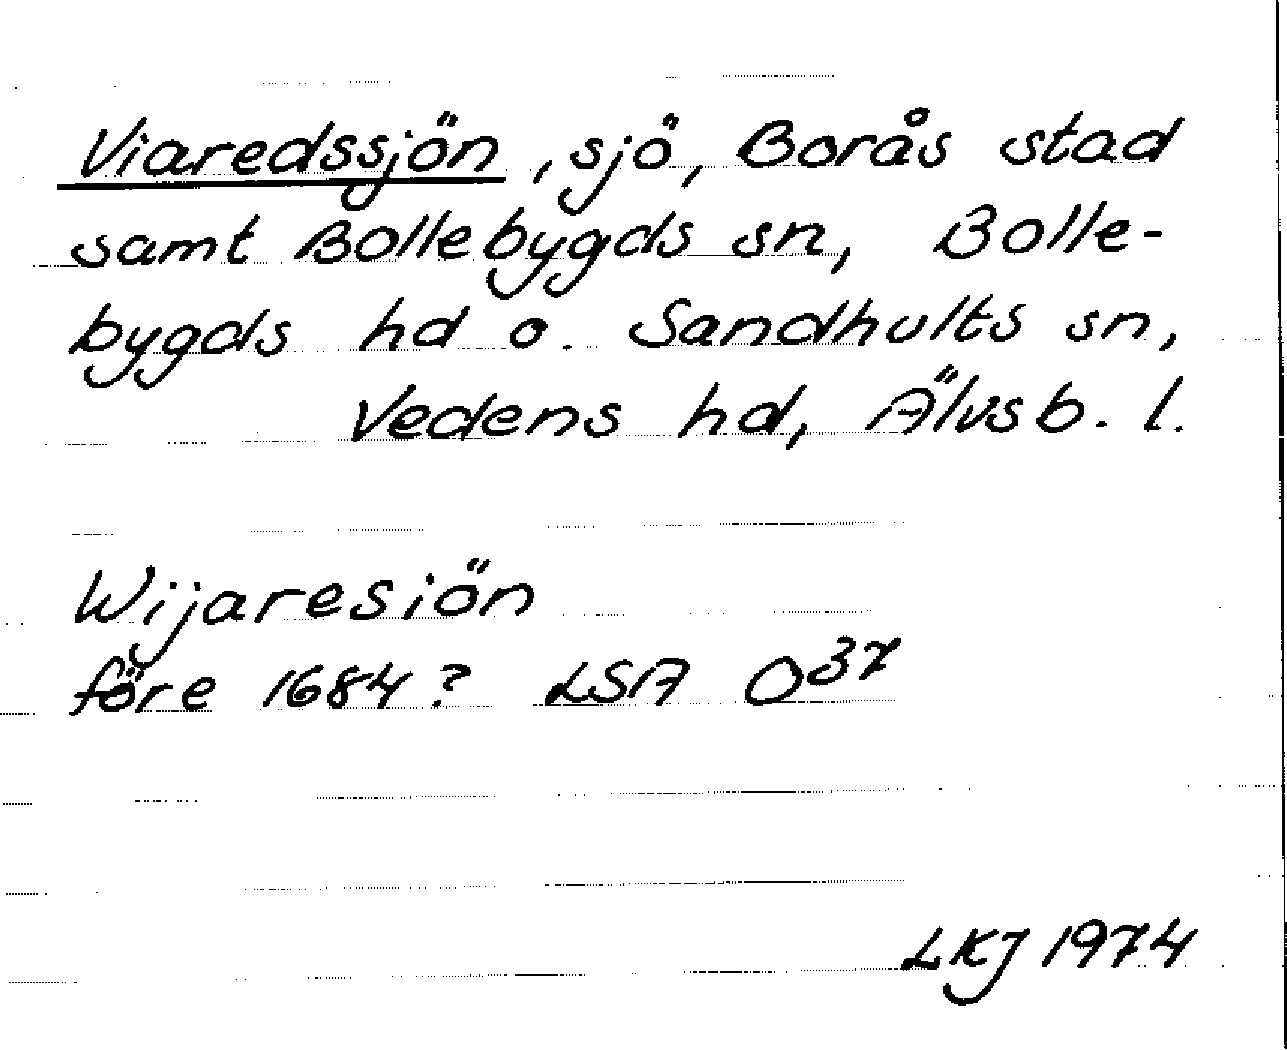 Viaredssjön, sjö, Borås stad
samt Bollebygds sn, Bolle-
bygds hd o. Sandhults sn,
Vedens hd, Älvsb. l.
Wijaresiön
före 1684? LSA O37
LKJ 1974